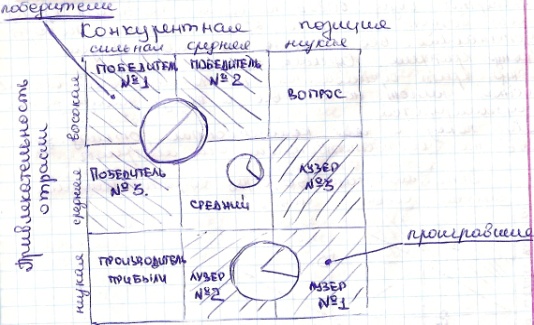 победители
Конкурентная позиция
сильная средняя низкая
Привлекательность
отрасли
высокая
средняя
низкая
ПОБЕДИТЕЛЬ
№1
ПОБЕДИТЕЛЬ
№2
ВОПРОС
ПОБЕДИТЕЛЬ
№5.
СРЕДНИЙ
ЛУЗЕР
№3
ПРОИЗВОДИТЕЛЬ
ПРИБЫЛИ
ЛУЗЕР
№2
ЛУЗЕР
№1
проигравшие